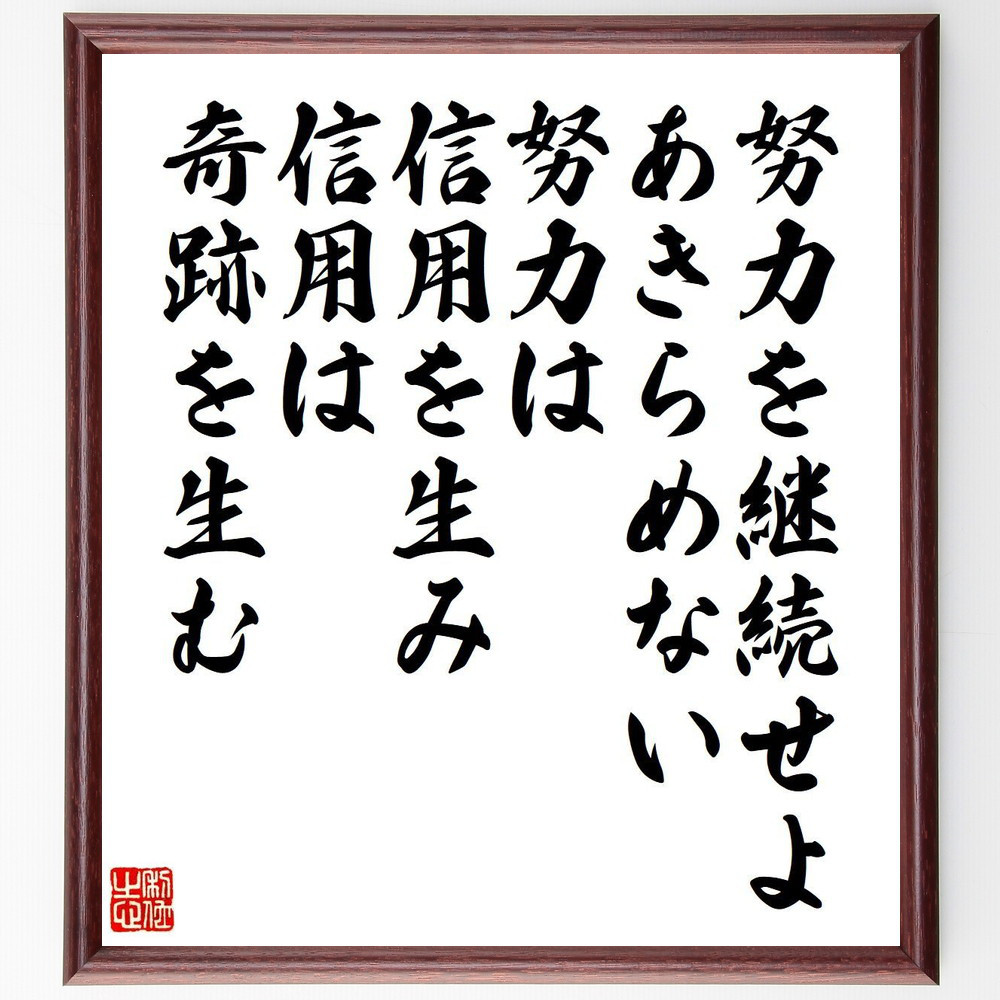 努力を継続せよ
あきらめない
努力は
信用を生み
信用は
奇跡を生む